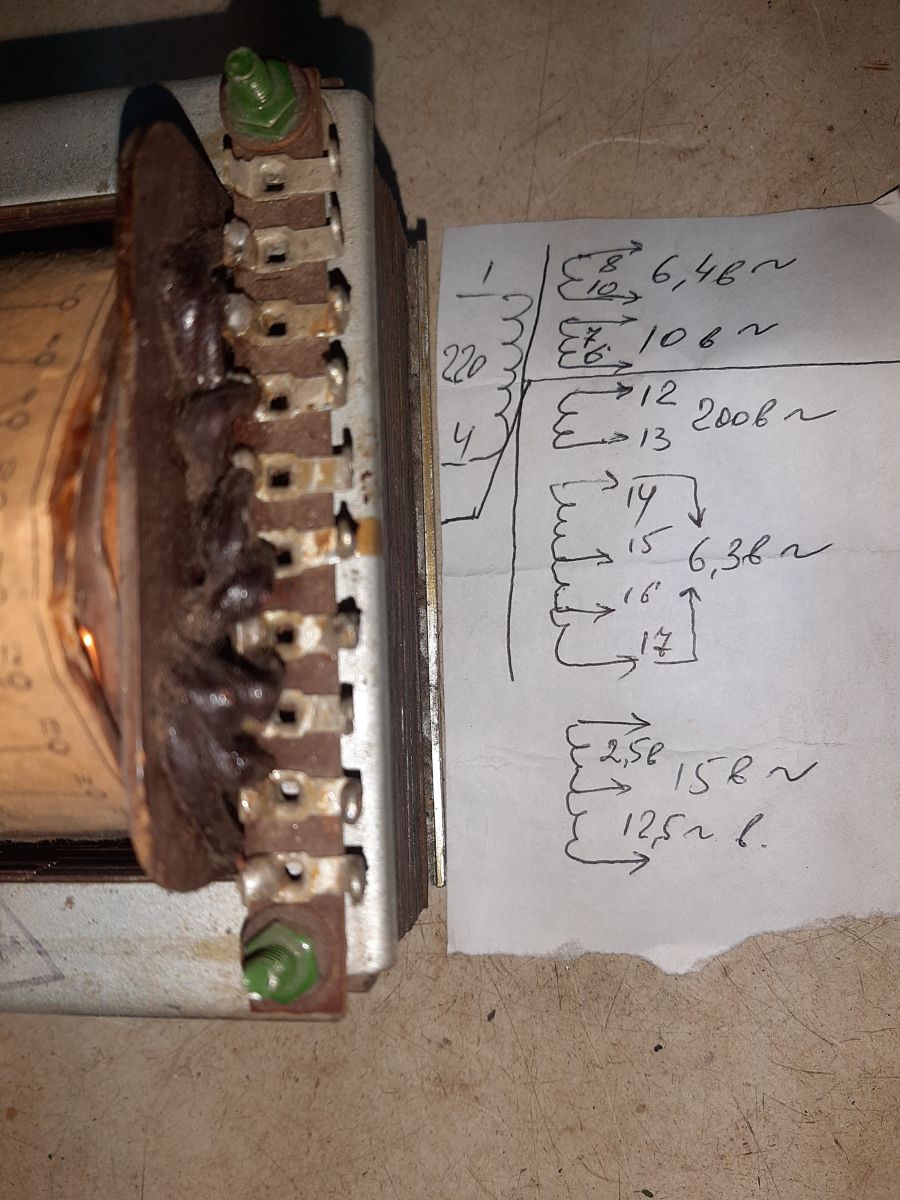 1
220
4
8
10
6,4в ~
7
6
10 в ~
12
13
200в ~
14
15
16
17
6,3в ~
2,5в
15в ~
12,5 ~ в.